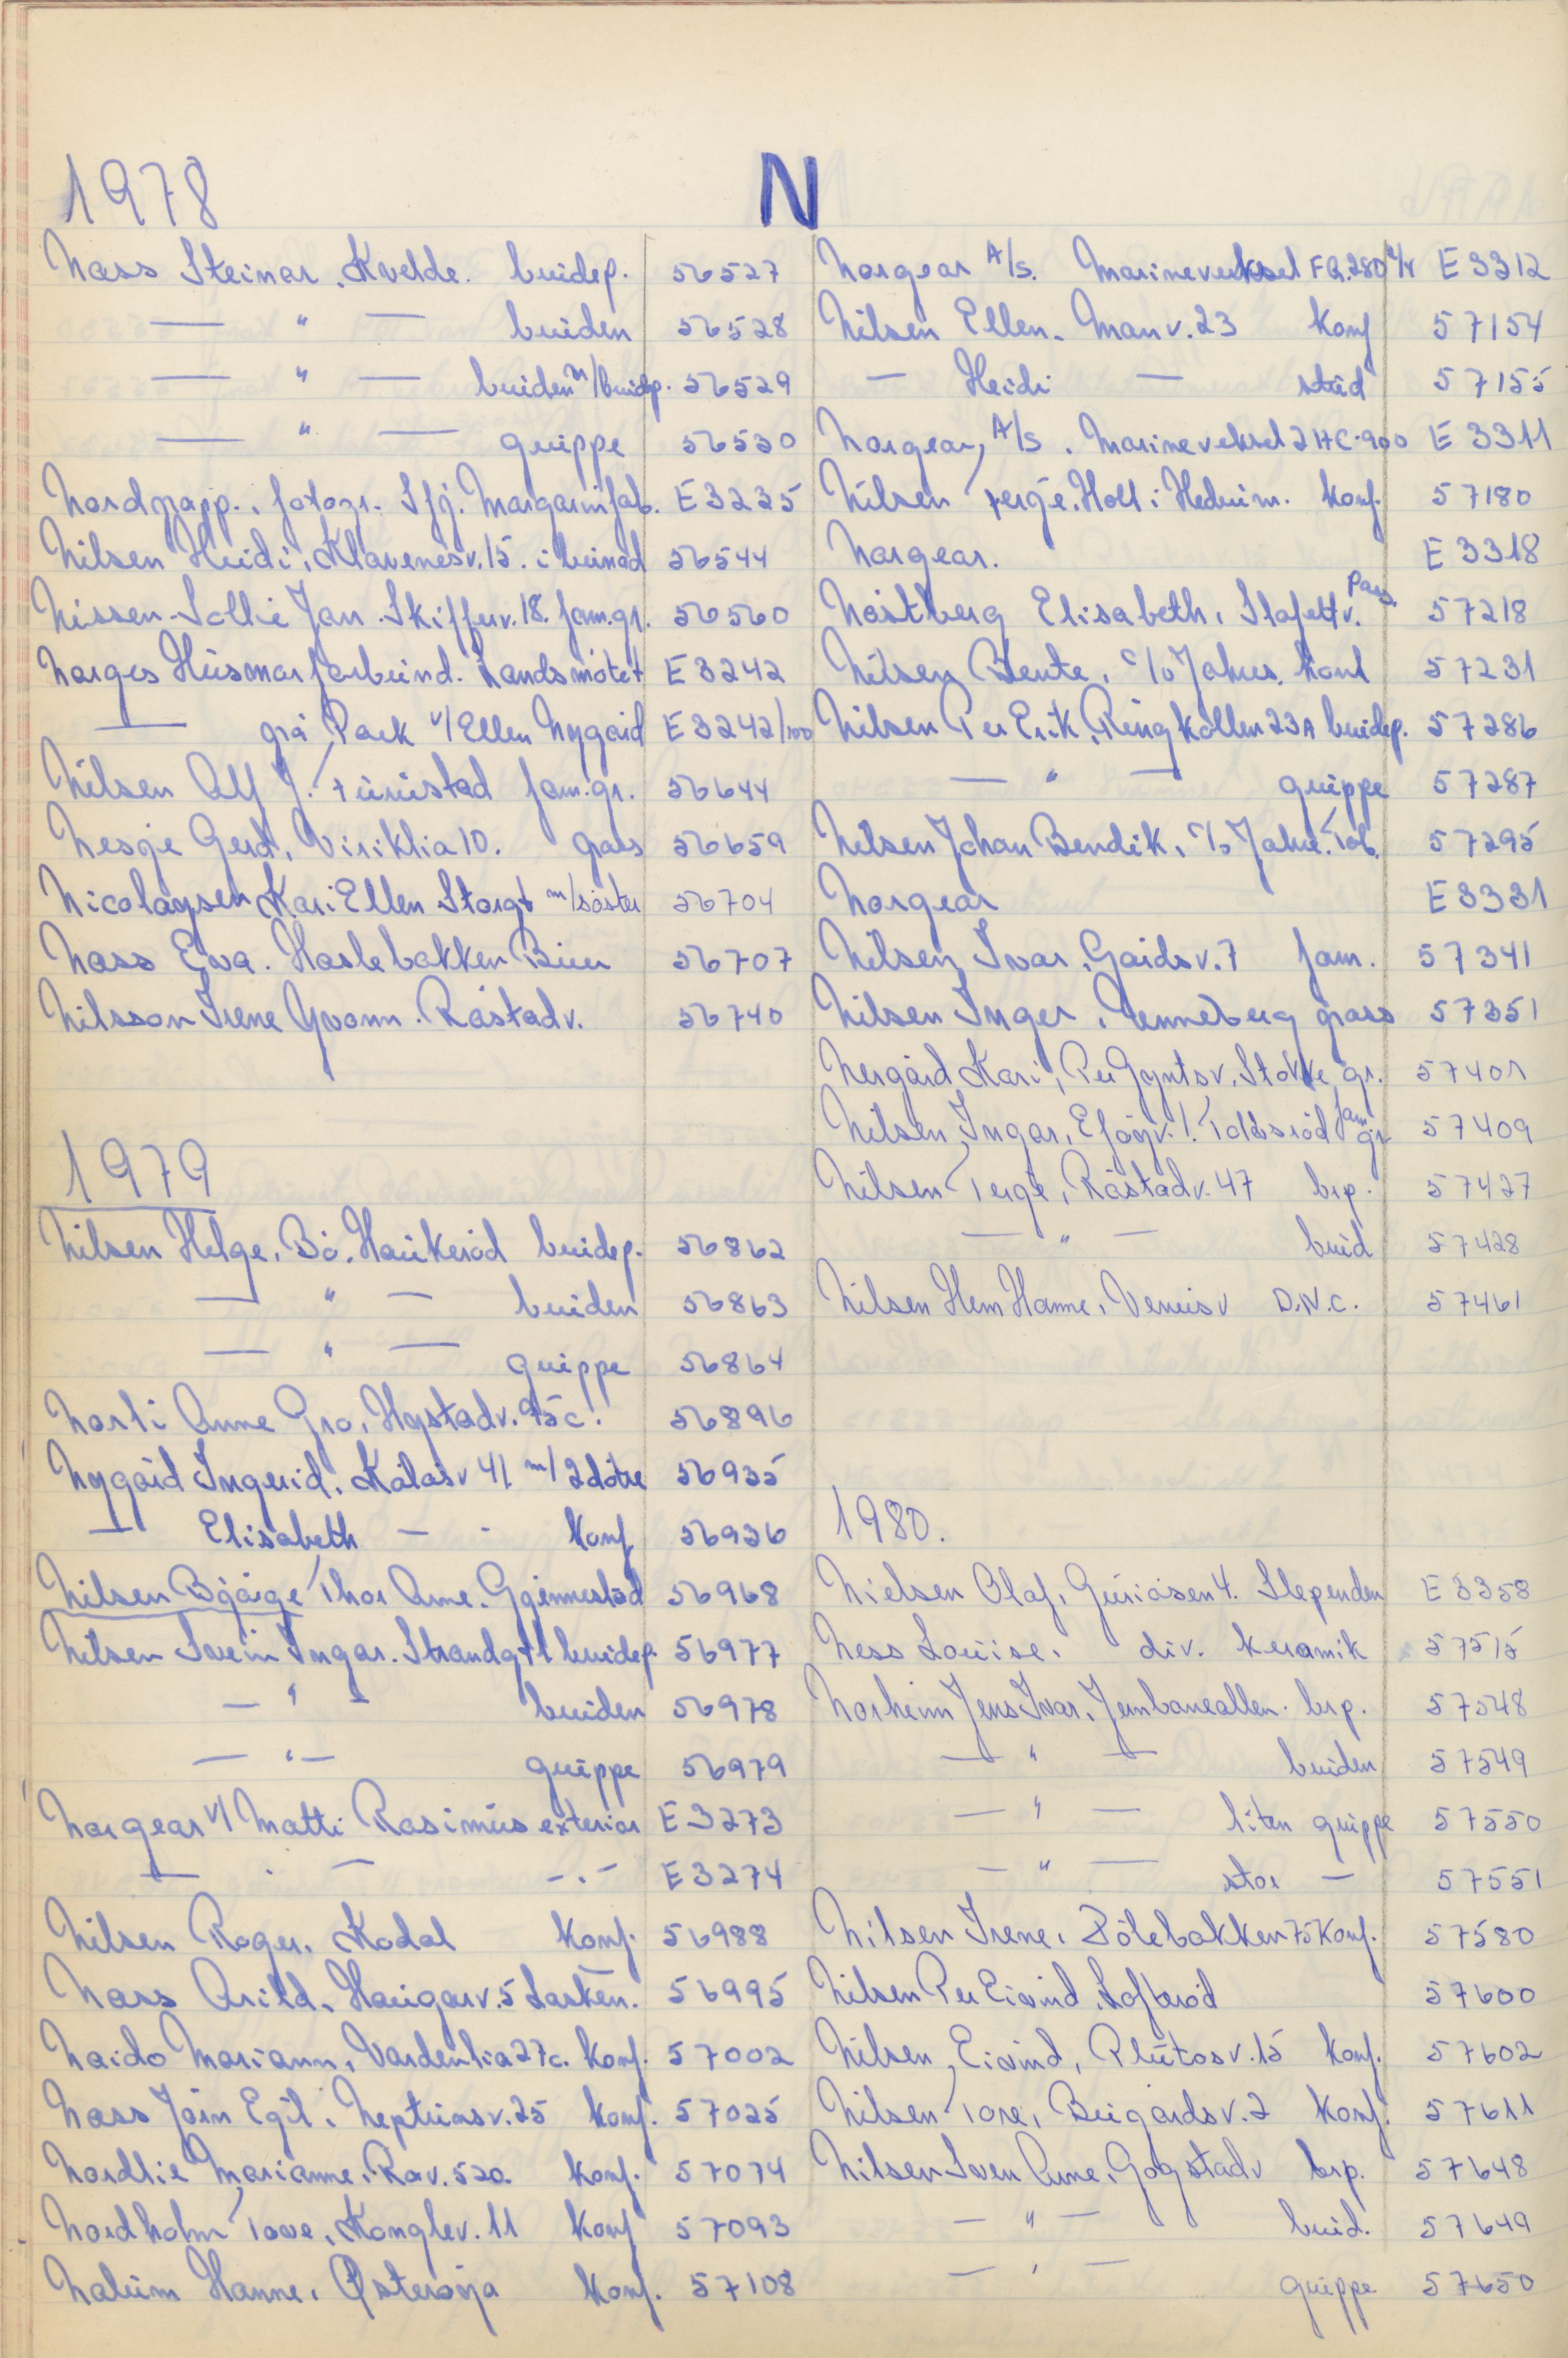 N
1978
Nass Steinar. Kvelde. bruidep. 56527
— " — bruiden 56528
— " — bruiden m/bruidep. 56529
— " — gruppe 56530
Nordgrapp., fotogr. Sfj. Margarinfab. E3235
Nilsen Heidi, Klavenesv. 15. i bunad 56544
Nissen-Sollie Jan. Skifferv. 18. fam.gr. 56560
Norges Husmorforbund. Landsmötet E3242
— grå Pack v/Ellen Nygård E3242/100
Nilsen Alf J. Furustad fam.gr. 56644
Nesje Gerd, Viriklia 10. pass 56659
Nicolaysen Kari Ellen Storgt m/söster 56704
Nass Eva. Haslebakken Buer 56707
Nilsson Irene Yvonn. Råstadv. 56740
1979
Nilsen Helge, Bö. Haukeröd bruidep. 56862
— " — bruiden 56863
— " — gruppe 56864
Norli Anne Gro, Hystadv. 95c. 56896
Nygård Ingerid. Kålåsv 41. m/2 dötre 56935
— Elisabeth — - konf 56936
Nilsen Bjørge Thor Arne. Gjennestad 56968
Nilsen Svein Ingar. Strandgt 1 bruidep. 56977
— " — bruiden 56978
— " — gruppe 56979
Norgear v/ Matti Rasimus exteriør E3273
— . — -.- E3274
Nilsen Roger. Kodal konf. 56988
Nass Arild. Haugarv. 5 Larsken. 56995
Naido Mariann, Vardenlia 27c. konf. 57002
Nass Jörn Egil. Neptunsv. 25 konf. 57025
Nordlie Marianne. Rav. 52a konf. 57074
Nordholm Tove, Konglev. 11 konf 57093
Nalum Hanne. Østerøya konf. 57108
Norgear A/s. Marineveksel FQ.280 E3312
Nilsen Ellen. Manv. 23 konf 57154
— Heidi — stud 57155
Norgear, A/s. Marineveksel 2HC-900 E3311
Nilsen Terje. Holt i Hedrum. konf. 57180
Norgear. E3318
Nöstberg Elisabeth, Stafettv. Pass. 57218
Nilsen Bente, c/o Jahres. kont 57231
Nilsen Per Erik. Ringkollen 23A bruidep. 57286
— " — gruppe 57287
Nilsen Johan Bendik, c/o Jahre. Tøb. 57295
Norgear E3331
Nilsen Ivar, Gårdsv. 7 fam. 57341
Nilsen Inger, Renneberg grass 57351
Nergård Kari, Per Gyntsv. Stokke gr. 57401
Nilsen, Ingar, Eföyv. 1. Tolvsröd fam gr 57409
Nilsen Terje, Råstadv. 47 brp. 57427
— " — bruid 57428
Nilsen Hem Hanne, Venusv D.N.C. 57461
1980.
Nielsen Olaf, Guriåsen 4. Slependen E3358
Ness Louise. div. keramik 57515
Norheim Jens Ivar. Jernbanealleen. brp. 57548
— " — bruiden 57549
— " — liten gruppe 57550
— " — stor — 57551
Nilsen Irene. Bölebakken 75 konf. 57580
Nilsen Per Eivind. Lofteröd 57600
Nilsen, Eivind, Plutosv. 15 konf. 57602
Nilsen Tore, Bugårdsv. 2 konf. 57611
Nilsen Sven Arne, Gogstadv brp. 57648
— " — bruid. 57649
— " — gruppe 57650